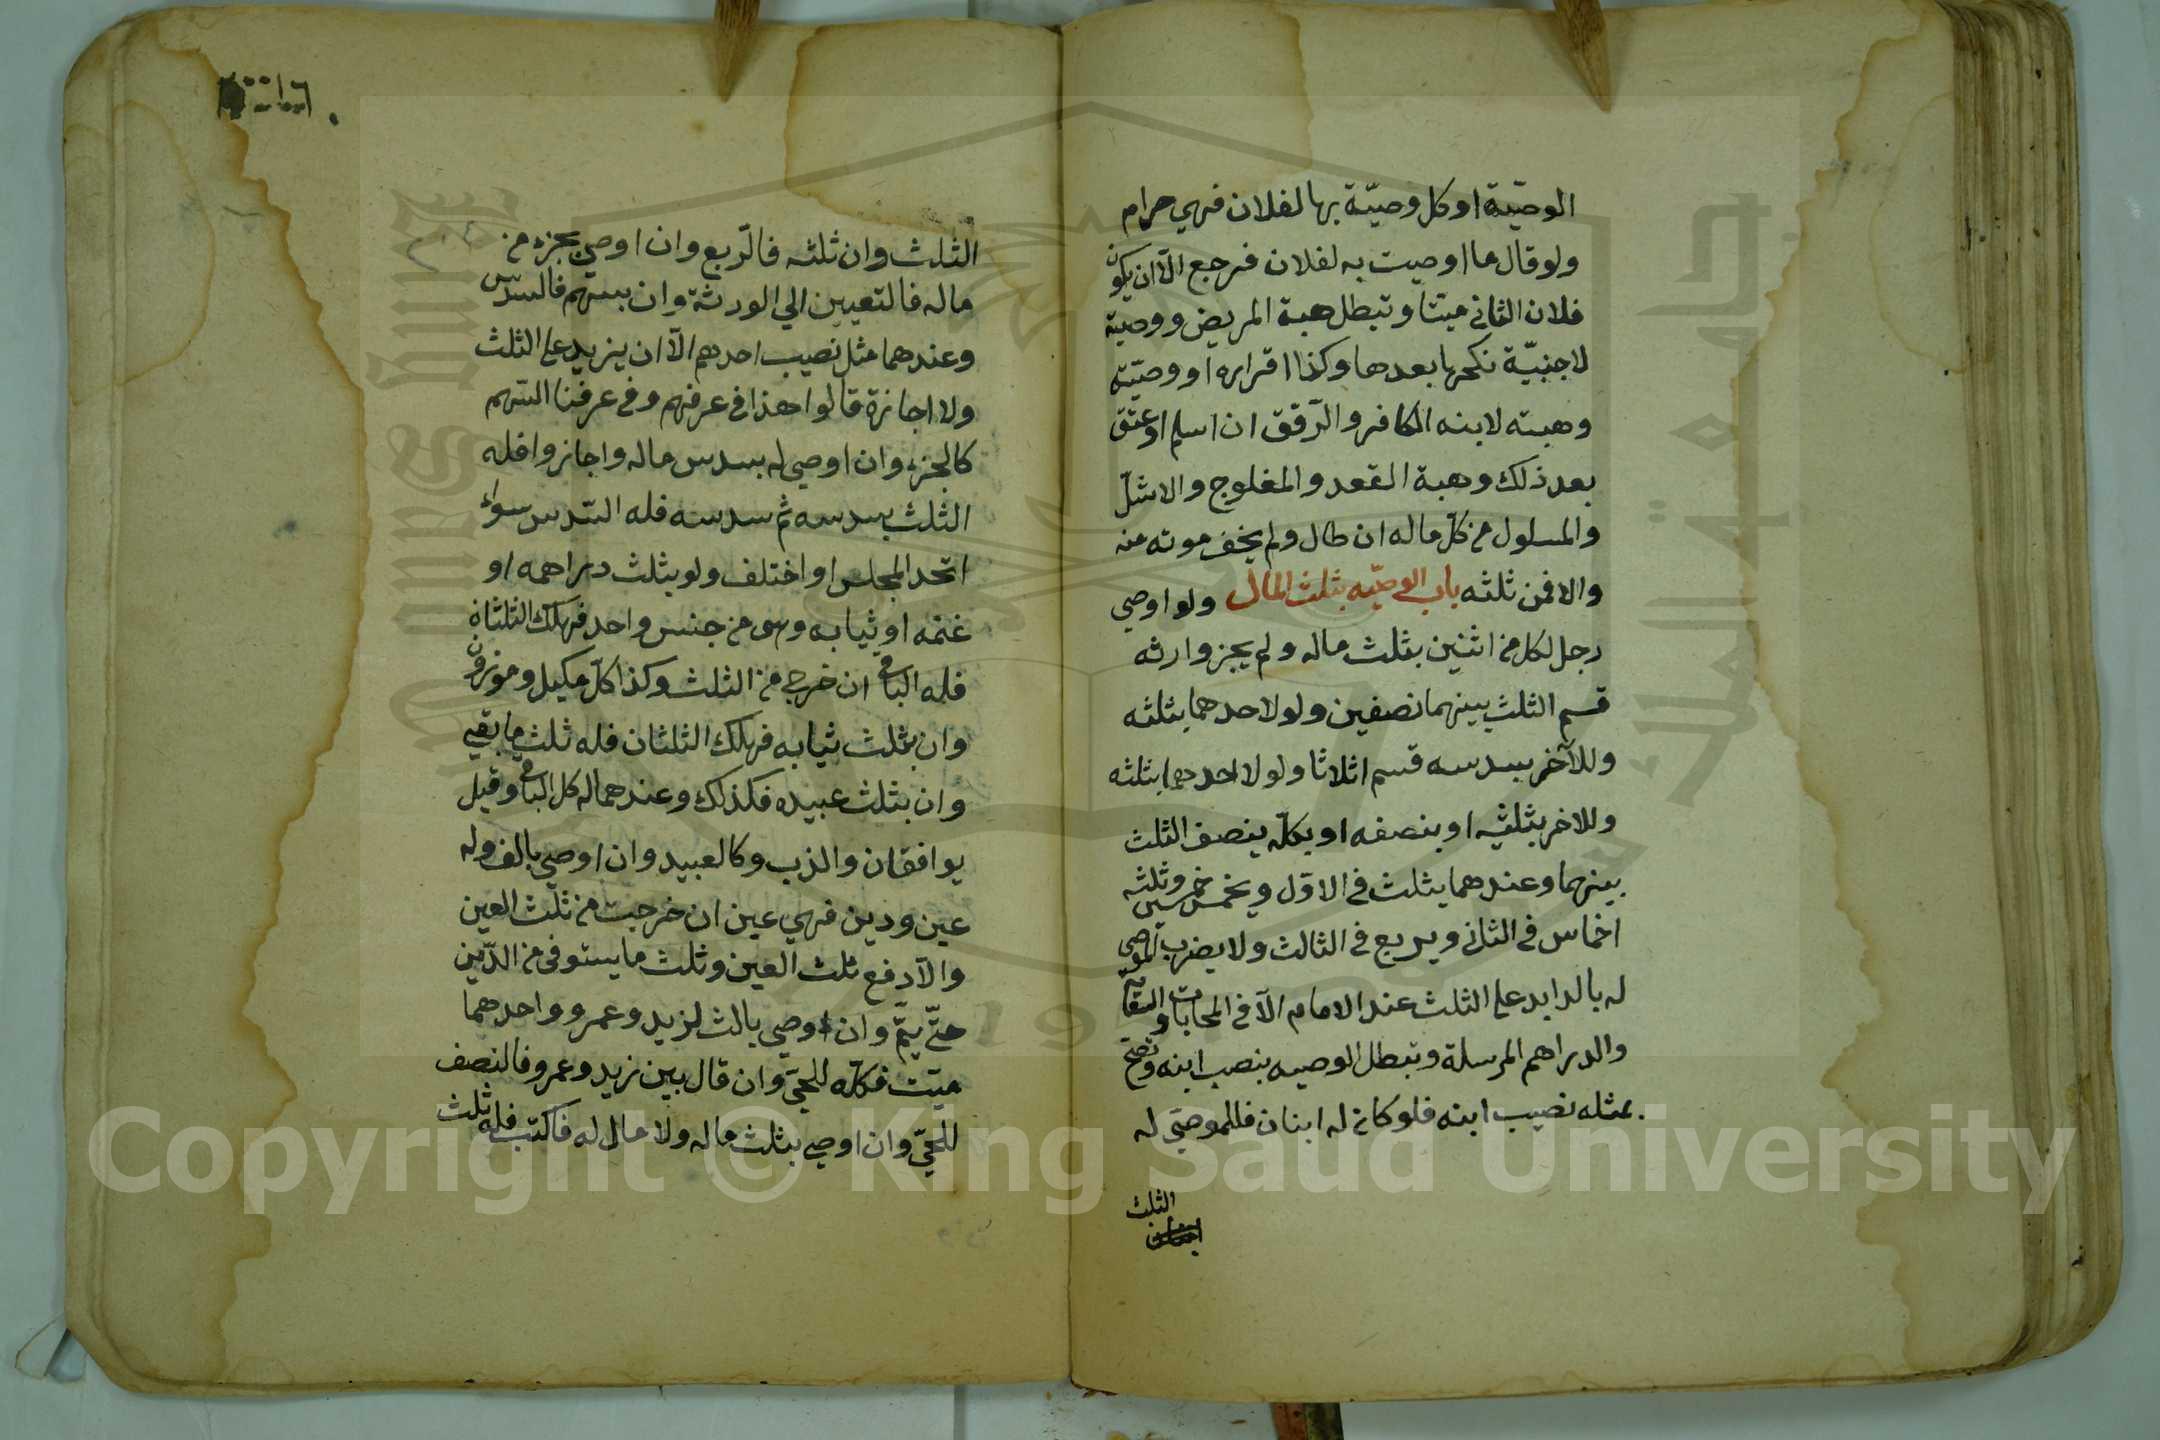 الوصيّة او كل وصيّة بها لفلان فهي حرام
ولو قال ما اوصيت به لفلان فرجع الّا ان يكون
فلان الثاني ميتا وتبطل هبة المريض ووصية
لاجنبيّة نكحها بعدها وكذا اقراره او وصيّته
وهبته لابنه الكافر والرقق ان اسلم او عتق
بعد ذلك وهبة القعد والمفلوج والاشلّ
والمسلول من كلّ ماله ان طال ولم يخف موته منه
والا فمن ثلثه باب الوصيّه بثلث المال ولو اوصي
رجل لكل من اثنين بثلث ماله ولم يجز وارثه
قسم الثلث بينهما نصفين ولو لاحدهما بثلثه
وللآخر بسدسه قسم اثلاثا ولو لاحدهما بثلثه
وللاخر بثلثيه او بنصفه او بكلّه ينصف الثلث
بينهما وعندهما يثلث في الاوّل ويخمس خمسين وثلثه
اخماس في الثاني ويربع في الثالث ولا يضرب الموصي
له بالزايد علي الثلث عند الامام الّا في المحابات والسقاية
والدراهم المرسلة وتبطل الوصيه بنصب ابنه وتصح
بمثله نصيب ابنه فلو كان له ابنان فللموصي له
الثلث
الثلث وان ثلثه فالرّبع وان اوصي بجزء من
ماله فالتعيين الي الورثة وان بسهم فالسدس
وعندهما مثل نصيب احدهم الّا ان يزيد علي الثلث
ولا اجازة قالوا هذا في عرفهم وفي عرفنا السّهم
كالجزء وان اوصي له بسدس ماله واجازوا فله
الثلث بسدسه ثم سدسه فله السّدس سواء
اتحد المجلس او اختلف ولو بثلث دراهمه او
غنمه او ثيابه وهي من جنس واحد فهلك الثلثان
فله الباقي ان خرج من الثلث وكذا كلّ مكيل وموزون
وان بثلث ثيابه فهلك الثلثان فله ثلث ما بقي
وان بثلث عبيده فكذلك وعندهما له كل الباقي وقيل
يوافقان والذب وكالعبيد وان اوصي بالف وله
عين ودين فهي عين ان خرجت من ثلث العين
والّا دفع ثلث العين وثلث ما يستوفي من الدّين
حتّي يتمّ وان اوصي بالث لزيد وعمرو واحدهما
ميّت فكلّه للحيّ وان قال بين زيد وعمرو فالنصف
للحيّ وان اوصي بثلث ماله ولا مال له فاكتب فله ثلث
Copyright © King Saud University